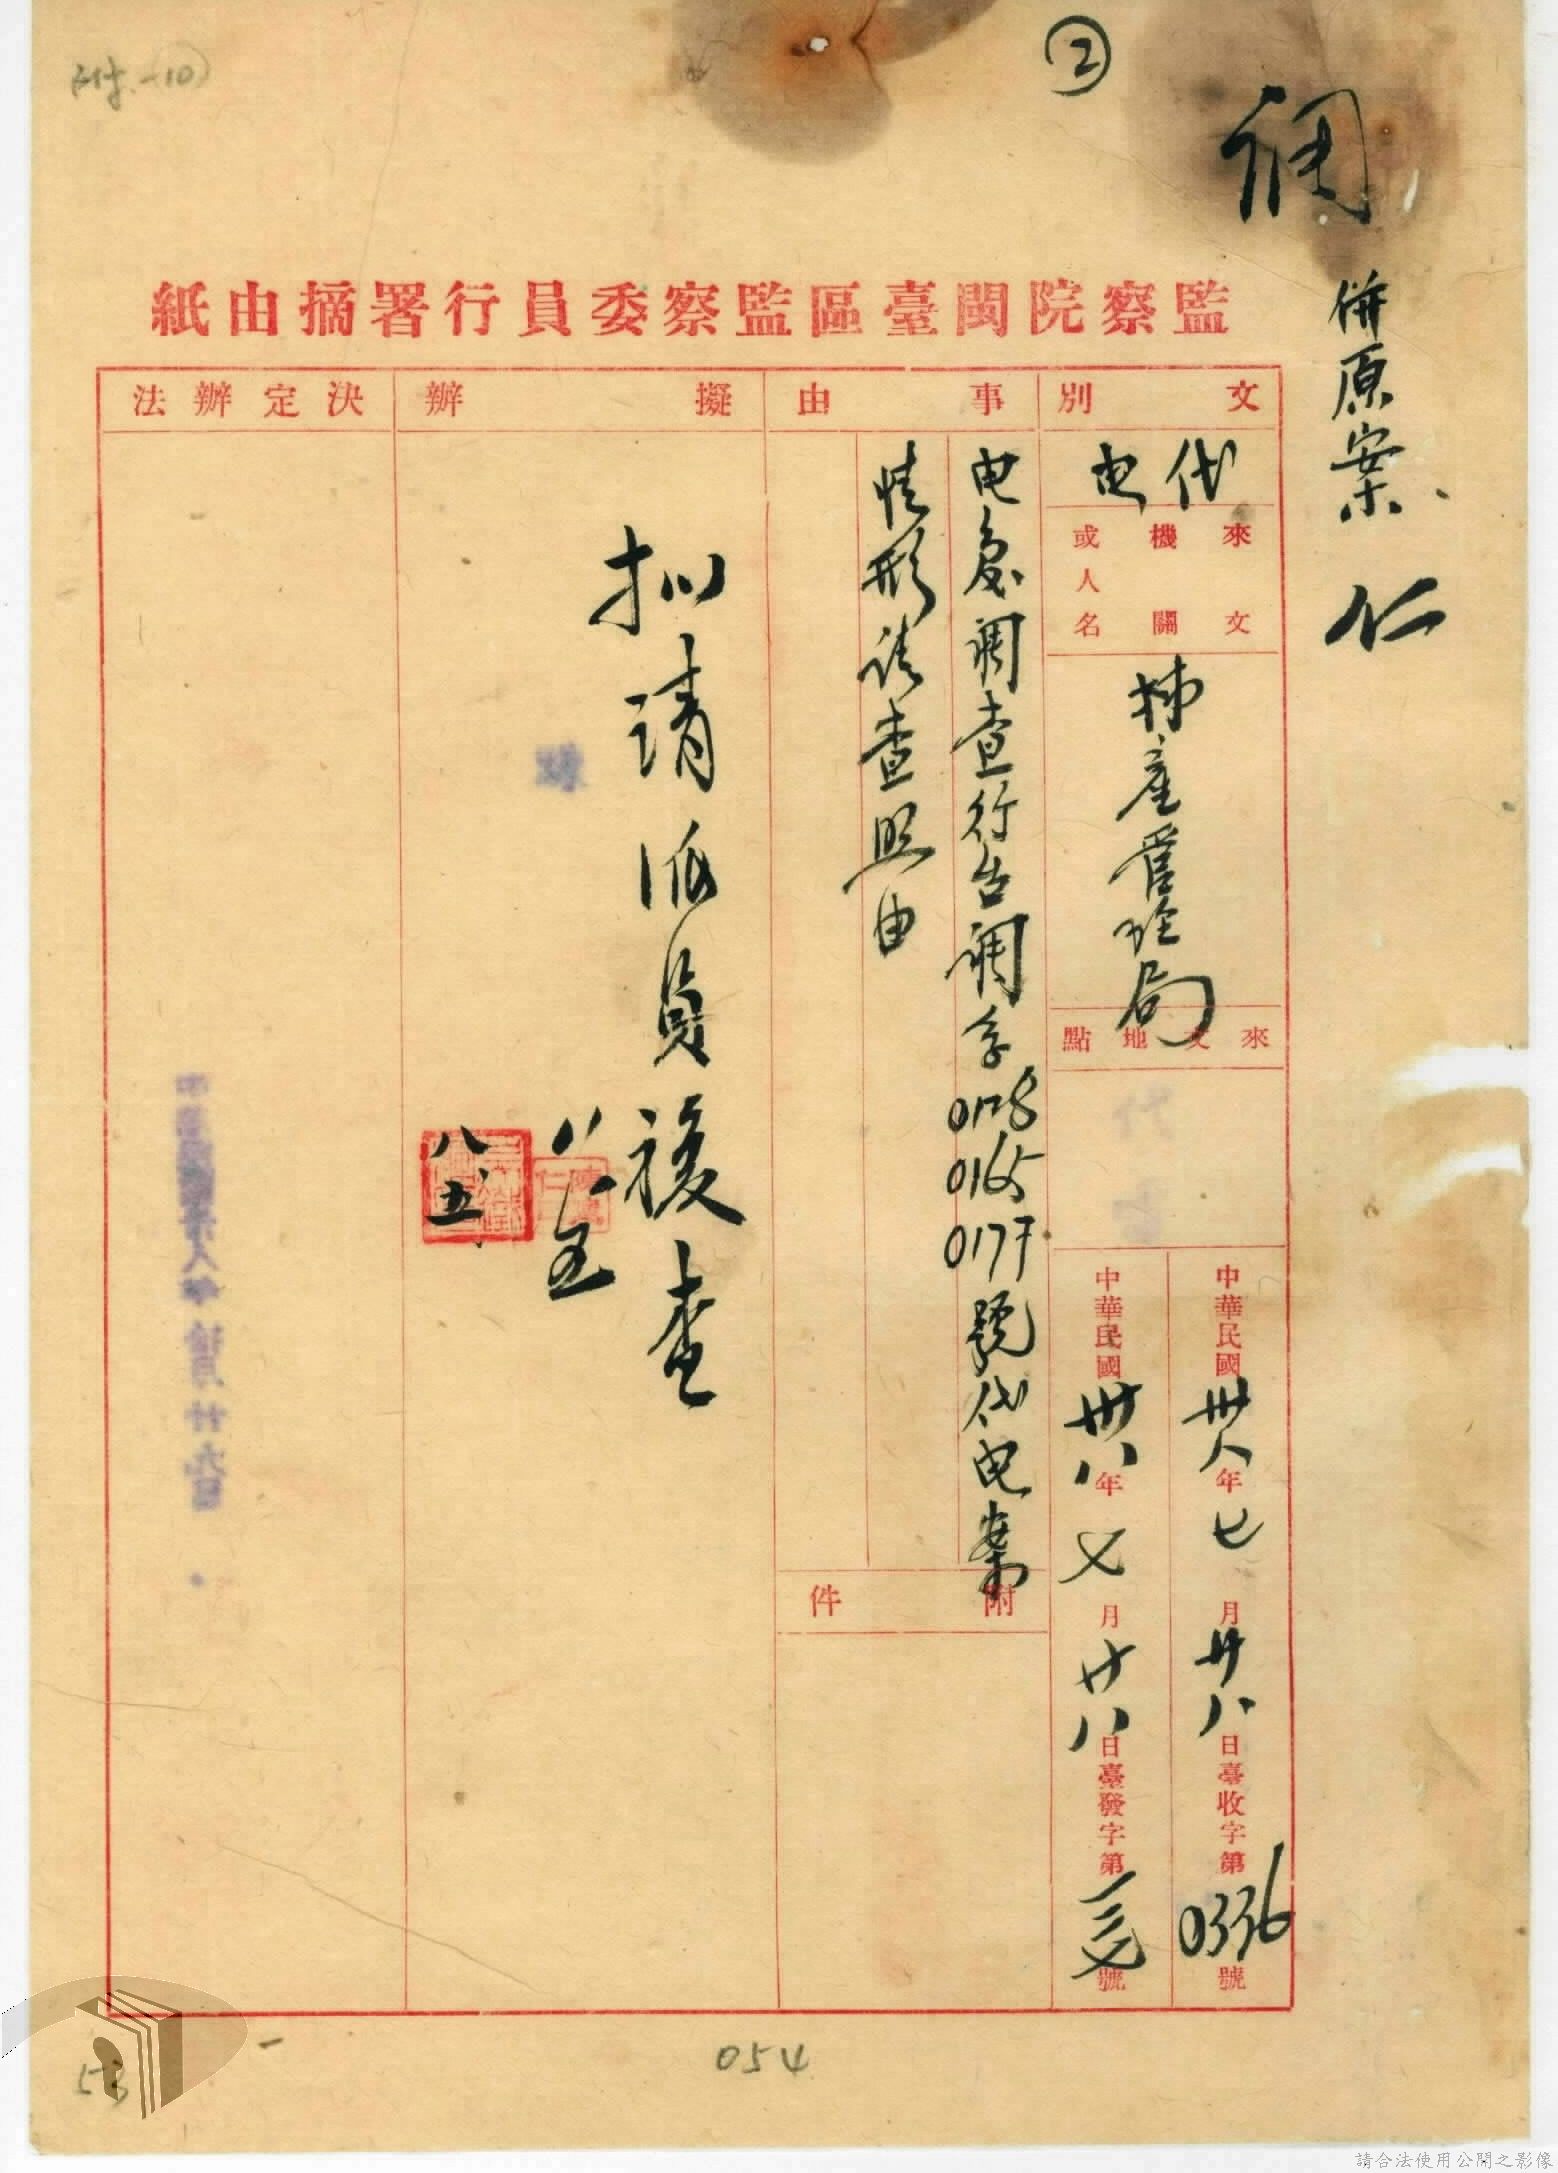 ②
調
併原案 仁
監察院閩臺區監察委員行署摘由紙
文別
代电
來文機關或人名
林產管理局
來文地點
中華民國卅八年七月廿八日臺收字第0336號
中華民國卅八年七月廿八日臺發字第號
事由
电复調查行台調字0128
0165
0177號代电案
情形請查照由
附件
擬辦
拟請派員複查
八、五
決定辦法
054
53
請合法使用公開之影像